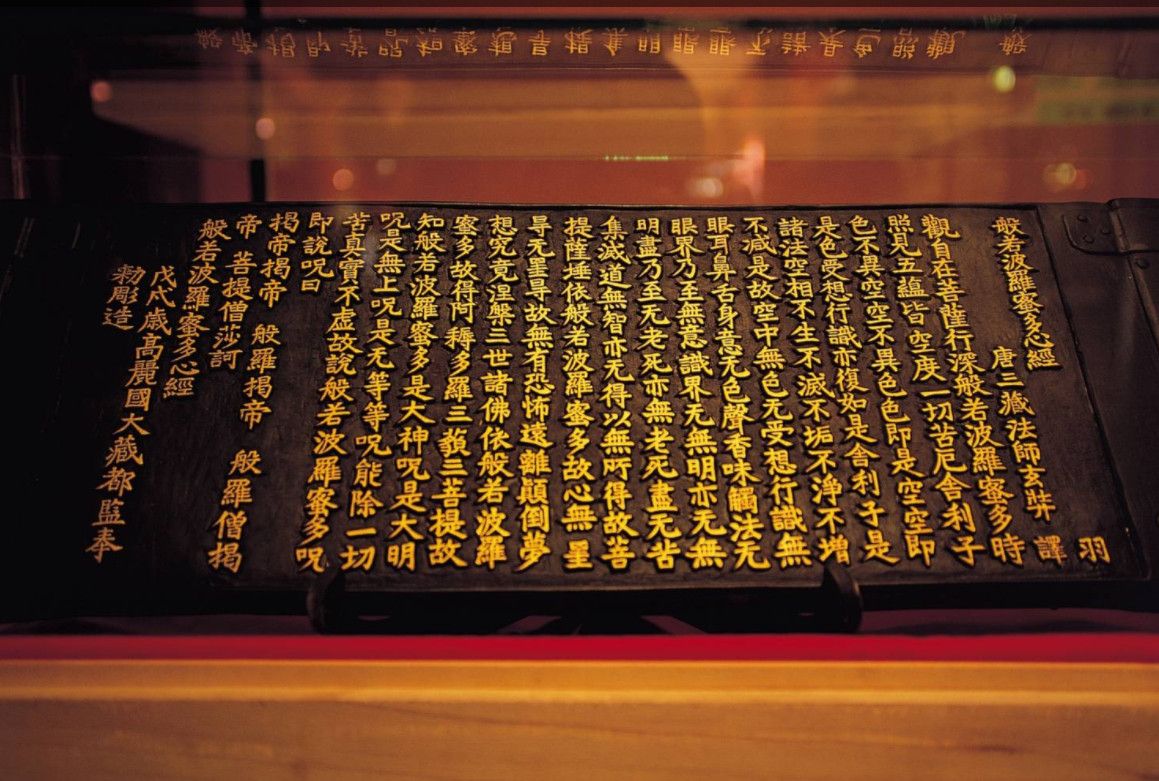 般若波羅蜜多心經 羽
唐三藏法師玄奘 譯
觀自在菩薩行深般若波羅蜜多時
照見五蘊皆空度一切苦厄舍利子
色不異空空不異色色即是空空即
是色受想行識亦復如是舍利子是
諸法空相不生不滅不垢不淨不增
不減是故空中無色无受想行識無
眼耳鼻舌身意无色聲香味觸法无
眼界乃至無意識界无無明亦无無
明盡乃至无老死亦無老死盡无苦
集滅道無智亦无得以無所得故菩
提薩埵依般若波羅蜜多故心無罣
㝵无罣㝵故無有恐怖遠離顚倒夢
想究竟涅槃三世諸佛依般若波羅
蜜多故得阿耨多羅三藐三菩提故
知般若波羅蜜多是大神呪是大明
呪是無上呪是无等等呪能除一切
苦真實不虛故說般若波羅蜜多呪
即說呪曰
揭帝揭帝 般羅揭帝 般羅僧揭
帝 菩提僧莎訶
般若波羅蜜多心經
戊戌歲高麗國大藏都監奉
勑彫造